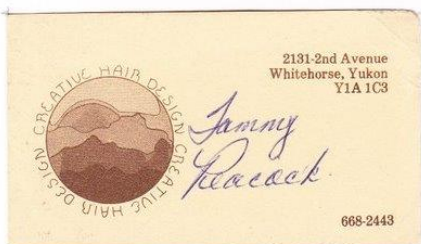 CREATIVE HAIR DESIGN CREATIVE HAIR DESIGN
2131-2nd Avenue
Whitehorse, Yukon
Y1A 1C3
Tammy
Peacock
668-2443